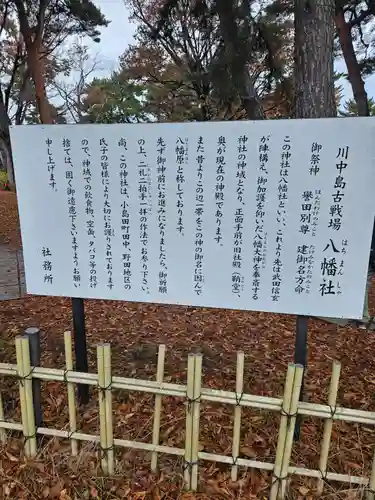 川中島古戦場 八幡社
はちまんしゃ
御祭神 誉田別尊 建御名方命
ほんだわけのみこと たけみなかたのみこと
この神社は八幡社といい、これより先は武田信玄
が陣構え、御加護を仰いだ八幡大神を奉斎する
神社の神域となり、正面手前が旧社殿（鞘堂）、
奥が現在の神殿であります。
また昔よりこの辺一帯をこの神の御名に因んで
八幡原と称しております。
先ず御神前にお進みになりましたら、御祈願
の上、二礼二拍手一拝の作法でお参り下さい。
尚、この神社は、小島田町田中、野田地区の
氏子の皆様により大切にお護りされております
ので、神域での飲食物、空缶、タバコ等の投げ
捨ては、固く御遠慮下さいますようお願い
申し上げます。
社務所